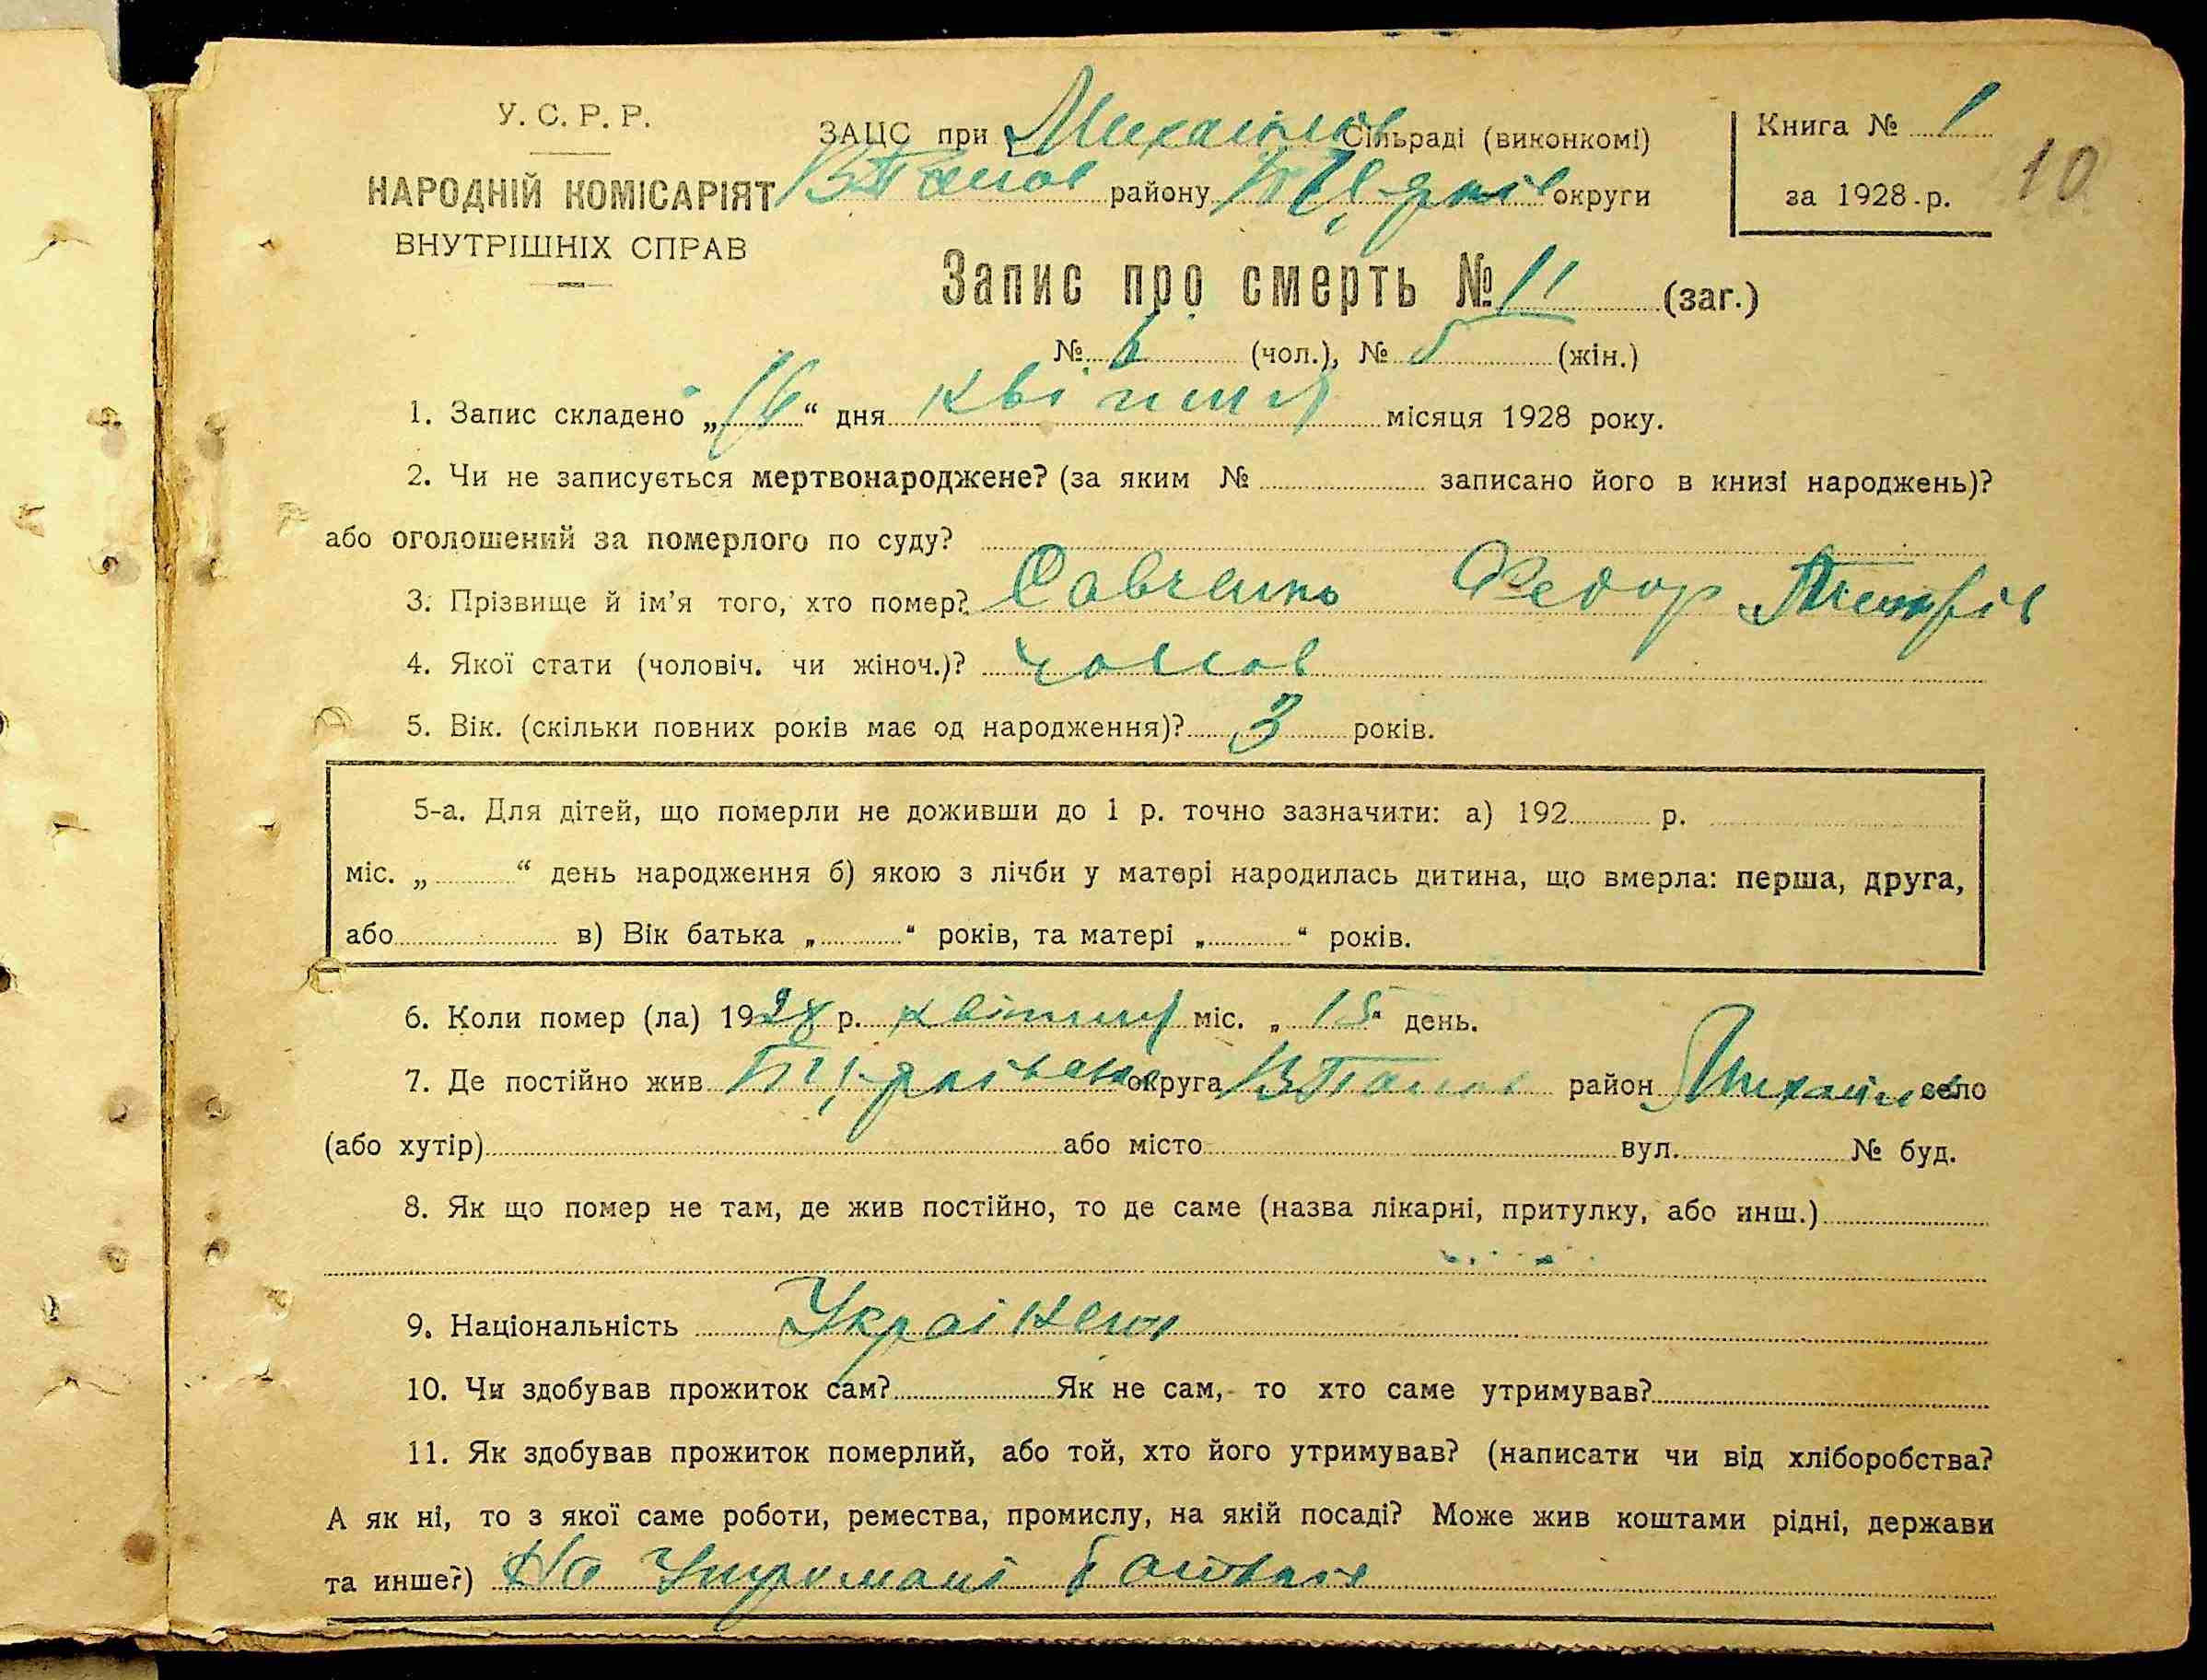 У. С. Р. Р.
НАРОДНІЙ КОМІСАРІЯТ
ВНУТРІШНІХ СПРАВ
ЗАЦС при Михайлов Сільраді (виконкомі)
району округи
Книга № 1
за 1928 р.
10
Запис про смерть № 11 (заг.)
№ 6 (чол.), № 5 (жін.)
1. Запис складено „16“ дня квітня місяця 1928 року.
2. Чи не записується мертвонароджене? (за яким № записано його в книзі народжень)?
або оголошений за померлого по суду?
3. Прізвище й ім’я того, хто помер? Савченко Федор Петрів
4. Якої стати (чоловіч. чи жіноч.)? чолов
5. Вік. (скільки повних років має од народження)? 3 років.
5-а. Для дітей, що померли не доживши до 1 р. точно зазначити: а) 192 р.
міс. „ “ день народження б) якою з лічби у матері народилась дитина, що вмерла: перша, друга,
або в) Вік батька „ “ років, та матері „ “ років.
6. Коли помер (ла) 1928 р. квітня міс. „15“ день.
7. Де постійно жив округа район Михайлів село
(або хутір) або місто вул. № буд.
8. Як що помер не там, де жив постійно, то де саме (назва лікарні, притулку, або инш.)
9. Національність Українец
10. Чи здобував прожиток сам? Як не сам, то хто саме утримував?
11. Як здобував прожиток померлий, або той, хто його утримував? (написати чи від хліборобства?
А як ні, то з якої саме роботи, ремества, промислу, на якій посаді? Може жив коштами рідні, держави
та инше?) На Утримані батьків